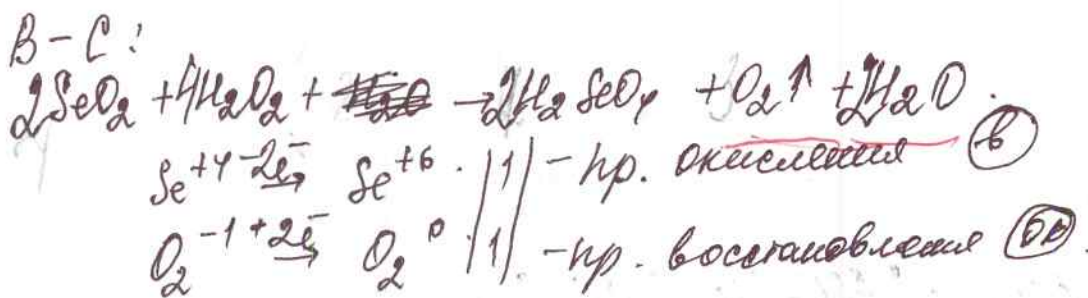 В – С:
2SeO₂ + 4H₂O₂ + → 2H₂SeO₄ + O₂↑ + 2H₂O.
Se⁺⁴ –2ē→ Se⁺⁶ |1| – пр. окисления (в)
O₂⁻¹ +2ē→ O₂⁰ |1| – пр. восстановления (ок).